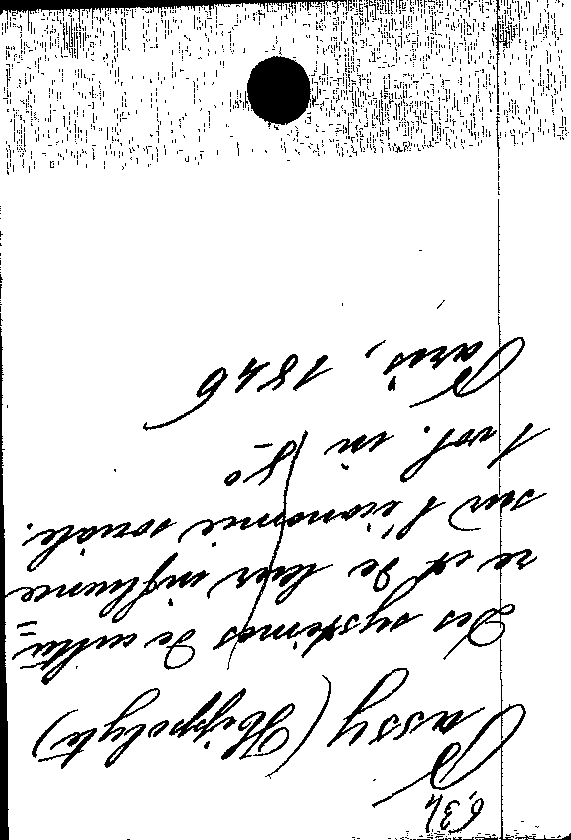 6,34
Passy (Hippolyte)
Des systèmes de cultu=
re et de leur influence
sur l'économie sociale.
1 vol. in 8°
Paris, 1846